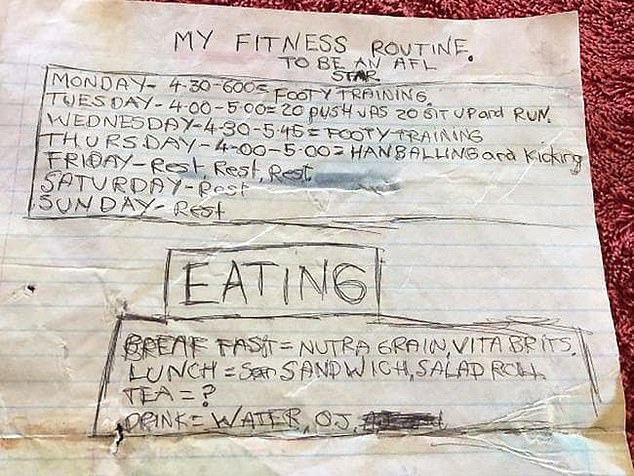 MY FITNESS ROUTINE.
TO BE AN AFL
STAR
MONDAY- 4-30-600= FOOTY TRAINING.
TUESDAY- 4-00-5-00= 20 PUSH UPS 20 SIT UP and RUN.
WEDNESDAY-4-30-5-45= FOOTY TRAINING
THURSDAY- 4-00-5-00= HANBALLING and Kicking
FRIDAY- Rest, Rest, Rest
SATURDAY- Rest
SUNDAY- Rest
EATING
BREAKFAST= NUTRAGRAIN, VITA BRITS.
LUNCH = SANDWICH, SALAD ROLL
TEA= ?
DRINK= WATER, O.J,